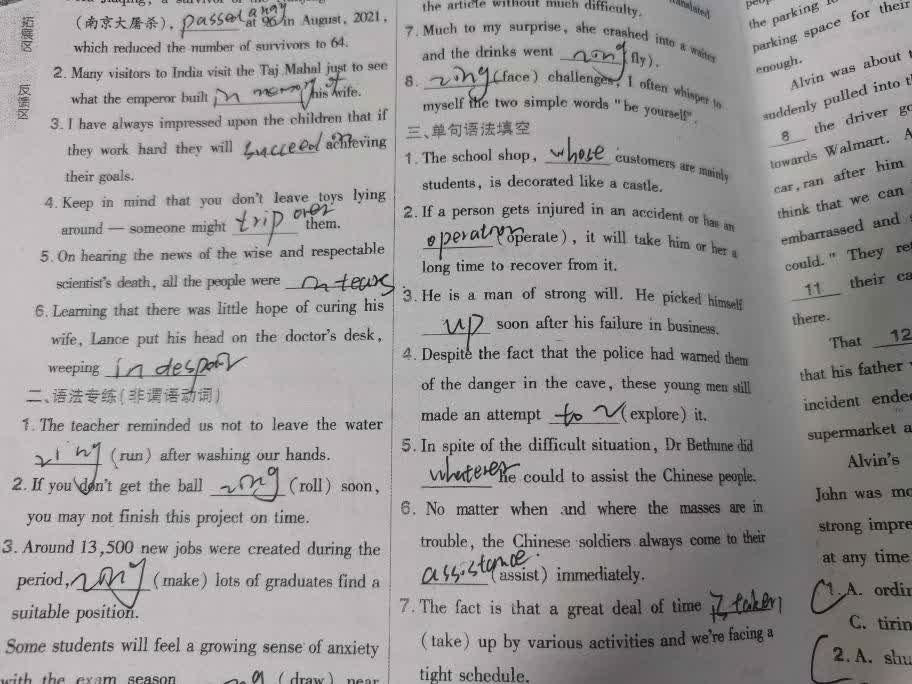 拓展区
反馈区
(南京大屠杀), passed away at 96 in August, 2021,
which reduced the number of survivors to 64.
2. Many visitors to India visit the Taj Mahal just to see
what the emperor built in memory of his wife.
3. I have always impressed upon the children that if
they work hard they will succeed achieving
their goals.
4. Keep in mind that you don't leave toys lying
around — someone might trip over them.
5. On hearing the news of the wise and respectable
scientist's death, all the people were in tears
6. Learning that there was little hope of curing his
wife, Lance put his head on the doctor's desk,
weeping in despair
二、语法专练(非谓语动词)
1. The teacher reminded us not to leave the water
~ing (run) after washing our hands.
2. If you don't get the ball ~ing (roll) soon,
you may not finish this project on time.
3. Around 13,500 new jobs were created during the
period, ~ing (make) lots of graduates find a
suitable position.
Some students will feel a growing sense of anxiety
with the exam season (draw) near
the article without much difficulty.
7. Much to my surprise, she crashed into a waiter
and the drinks went ~ing (fly).
8. ~ing (face) challenges, I often whisper to
myself the two simple words "be yourself".
三、单句语法填空
1. The school shop, whose customers are mainly
students, is decorated like a castle.
2. If a person gets injured in an accident or has an
operation (operate), it will take him or her a
long time to recover from it.
3. He is a man of strong will. He picked himself
up soon after his failure in business.
4. Despite the fact that the police had warned them
of the danger in the cave, these young men still
made an attempt to ~ (explore) it.
5. In spite of the difficult situation, Dr Bethune did
whatever he could to assist the Chinese people.
6. No matter when and where the masses are in
trouble, the Chinese soldiers always come to their
assistance. (assist) immediately.
7. The fact is that a great deal of time is taken
(take) up by various activities and we're facing a
tight schedule.
the parking
parking space for their
enough.
Alvin was about
suddenly pulled into
8 the driver
towards Walmart.
car, ran after him
think that we can
embarrassed and
could." They
11 their
there.
That 12
that his father
incident
supermarket
Alvin's
John was
strong
at any time
1. A.
C.
2. A.